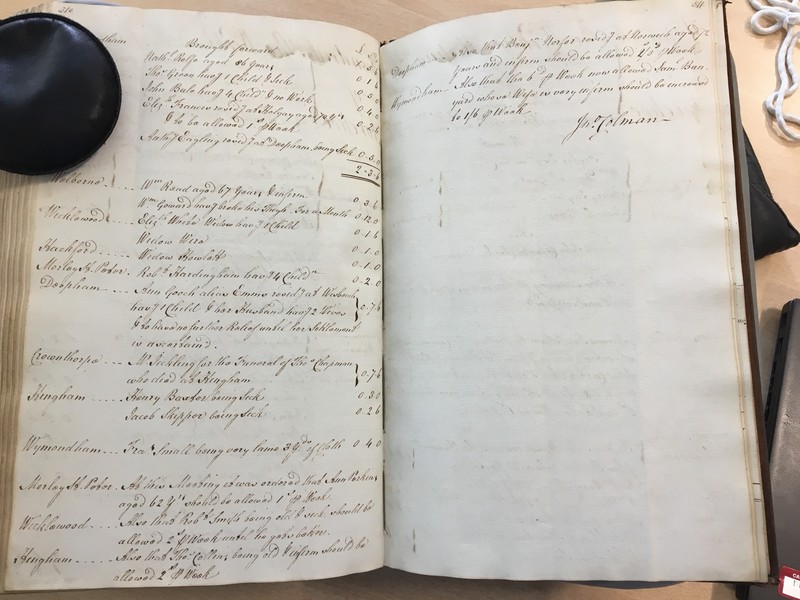 210
Brought forward
£
Nath.l Rolfe aged 86 years
Tho.s Green hav.g 1 Child & Sick
John Bule hav.g 4 Child.n & no Work
Eliz.th Francis resid.g at Hilgay aged 74 y.rs
& to be allowed 1s p Week
0 . 2 . 6
Anth.y Eagling resid.g at Deopham, being Sick 0 . 5 . 0
2 - 3 - 6
Welborne .... W.m Read aged 67 Years & infirm 0 . 3 . 6
W.m Goward hav.g broke his Thigh. For a Month 0 . 12 . 0
Wicklewood .... Eliz.th Widow hav.g 1 Child 0 . 1 . 6
Widow 0 . 1 . 0
Hackford .... Widow Howlett 0 . 1 . 0
Morley St. Peter . Rob.t Hardingham hav.g 4 Child.n 0 . 2 . 0
Deopham .... Ann Gooch alias Emms resid.g at Wisbeach
hav.g 1 Child & her Husband hav.g 2 Wives } 0 . 7 . 6
& to have no further Relief until her Settlement
is ascertain'd .
Crownthorpe .... M.r Jickling for the Funeral of Tho.s Chapman
who died at Hingham } 0 . 7 . 6
Hingham .... Henry Baxter being Sick 0 . 3 . 0
Jacob Skipper being Sick 0 . 2 . 6
Wymondham .... Fra.s Small being very lame 3 y.ds of Cloth 0 4 0
Morley St. Peter .... At this Meeting it was ordered that Ann Parker
aged 62 y.rs should be allowed 1s p Week
Wicklewood .... Also that Rob.t Smith being old & sick, should be
allowed 2s p Week until he gets better.
Hingham .... Also that Tho.s Cullen being old & infirm should be
allowed 2s p Week
211
Deopham .... Also that Benj.n Norfor resid.g at Norwich aged
years and infirm should be allowed p Week
Wymondham .... Also that the 6d p Week now allowed Sam.l Bun
yard whose Wife is very infirm should be encreased
to 1/6 p Week
Jn.o Colman